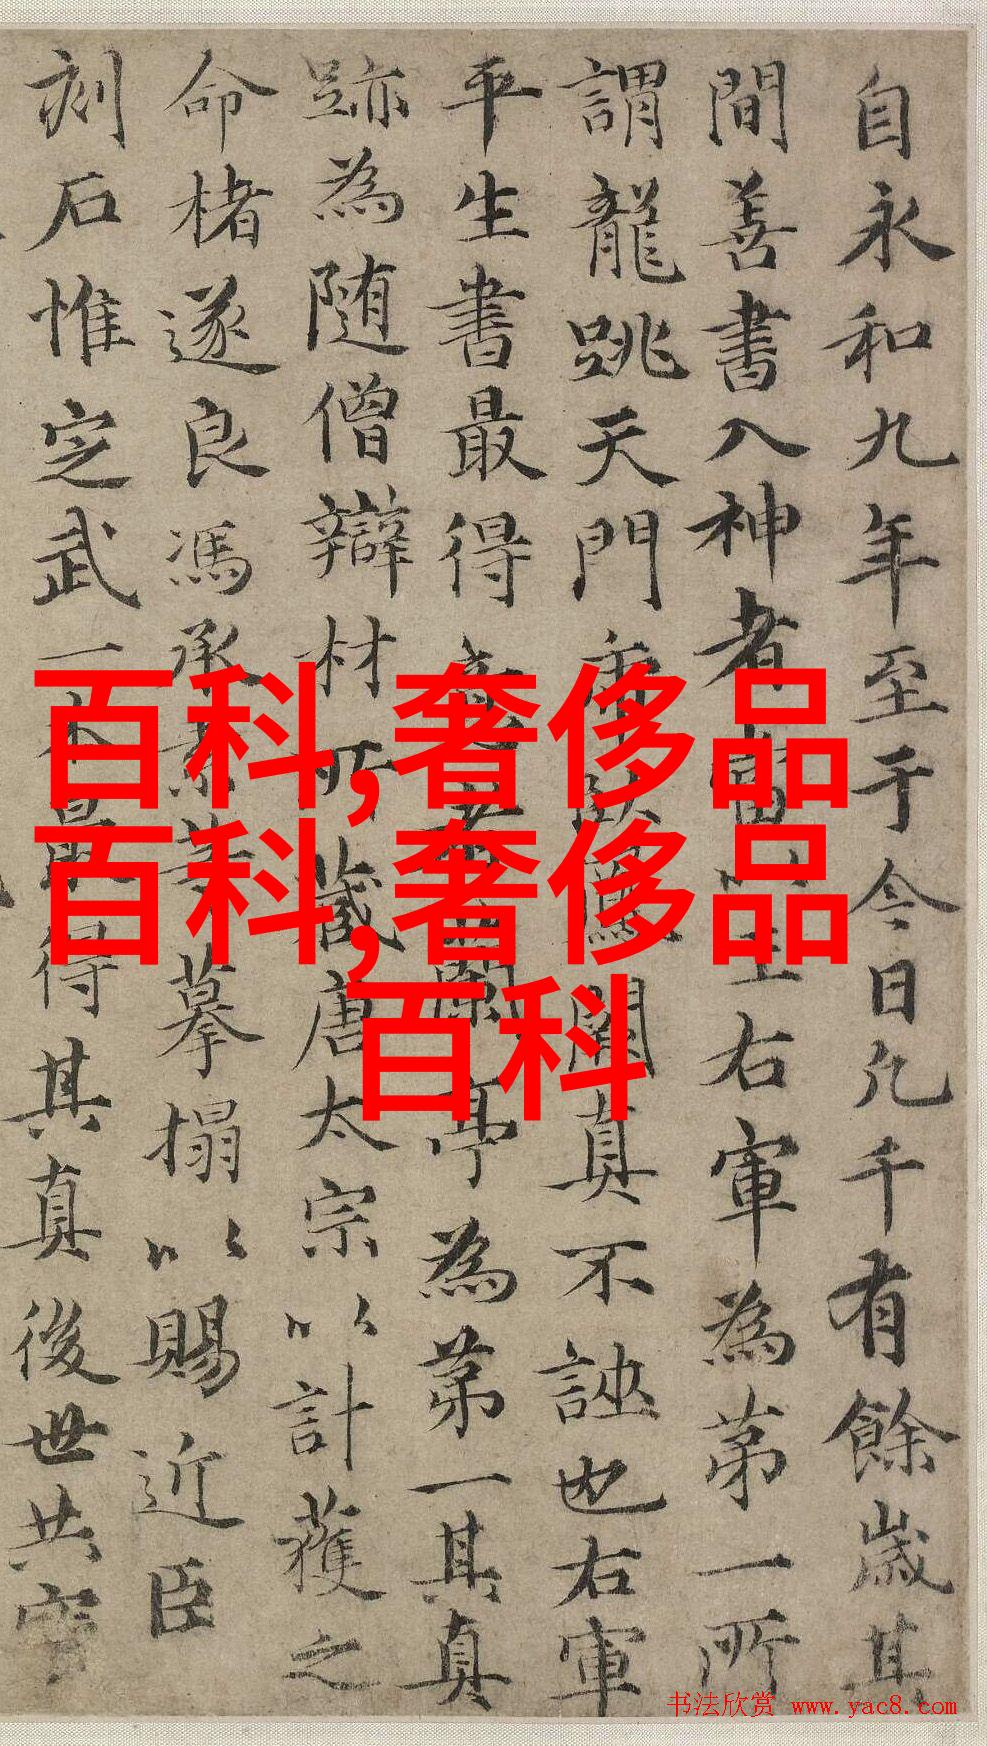 自永和九年至于今日凡千有餘歲其
間善書入神者當以王右軍為第一所
謂龍跳天門虎臥鳳閣真不誣也右軍
平生書最得意者蘭亭為第一其真
跡為随僧辯材所藏唐太宗以計獲之
命楮遂良馮承素等摹搨以賜近臣
刻石惟定武一本最得其真後世共寶
百科,奢侈品
百科,奢侈品
百科
书法欣赏 www.yac8.com